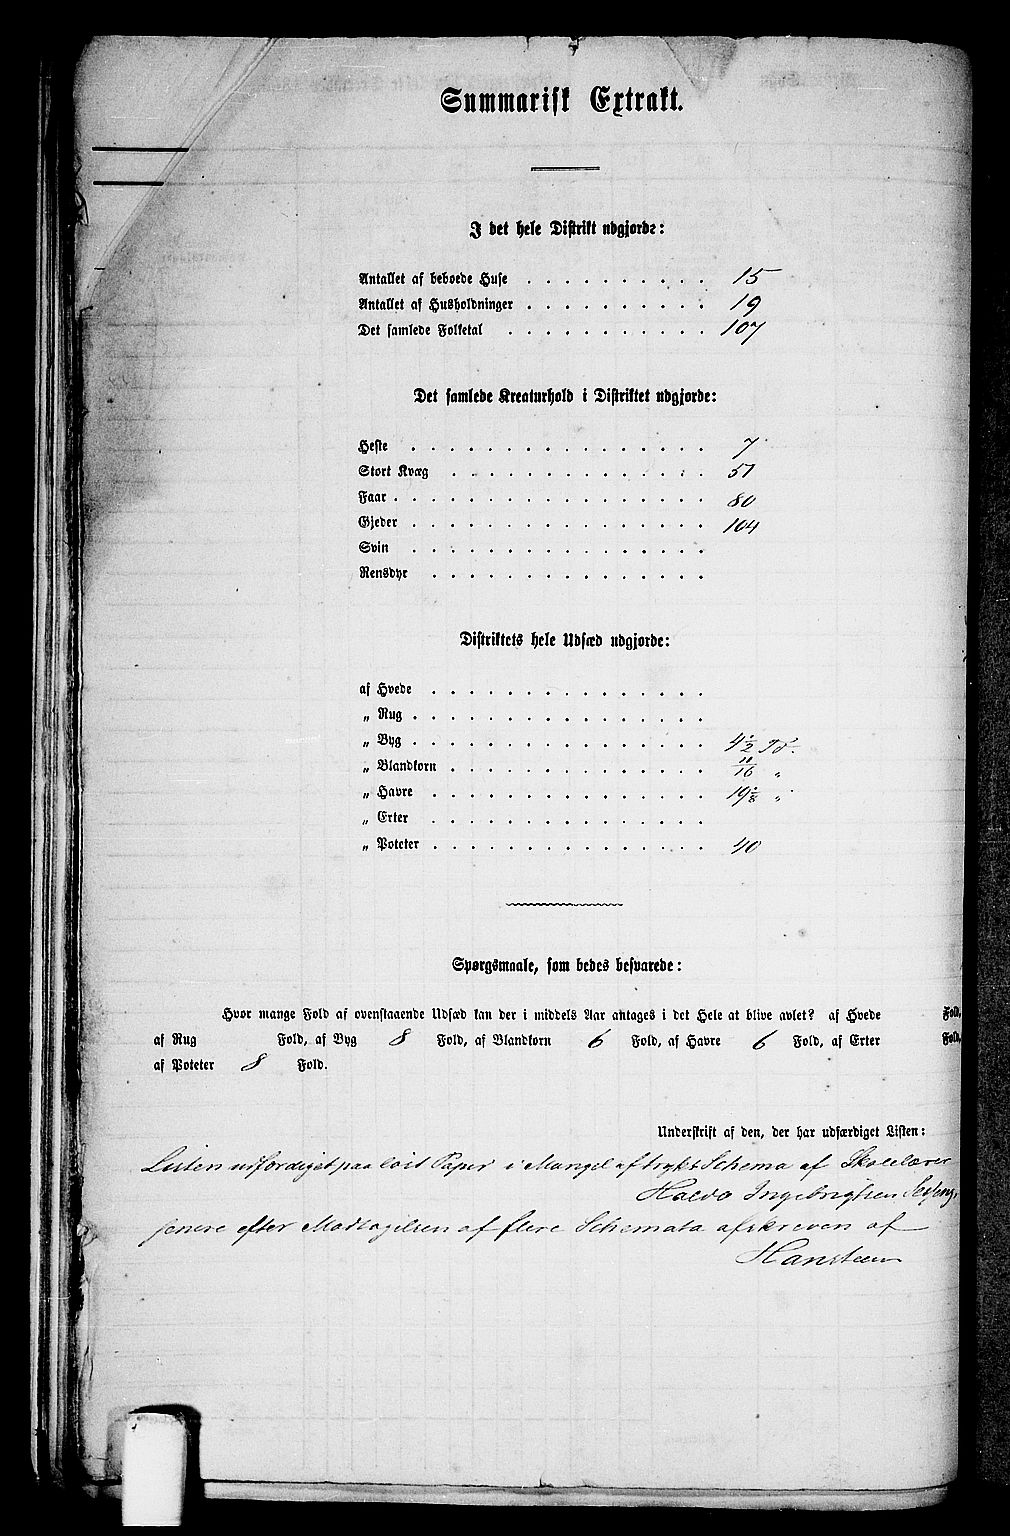 Summarisk Extrakt.
I det hele Distrikt udgjorde:
Antallet af beboede Huse . . . . . . . . . . 15
Antallet af Husholdninger . . . . . . . . . . 19
Det samlede Folketal . . . . . . . . . . . 107
Det samlede Kreaturhold i Distriktet udgjorde:
Heste . . . . . . . . . . . . . . . . 7
Stort Kvæg . . . . . . . . . . . . . . 51
Faar . . . . . . . . . . . . . . . . . 80
Gjeder . . . . . . . . . . . . . . . . 104
Svin . . . . . . . . . . . . . . . .
Rensdyr . . . . . . . . . . . . . . .
Distriktets hele Udsæd udgjorde:
af Hvede . . . . . . . . . . . . . . .
„ Rug . . . . . . . . . . . . . . . .
„ Byg . . . . . . . . . . . . . . . . 4½ Td.
„ Blandkorn . . . . . . . . . . . . . . 11/16 „
„ Havre . . . . . . . . . . . . . . . 19⅛ „
„ Erter . . . . . . . . . . . . . . .
„ Poteter . . . . . . . . . . . . . . . 40
Spørgsmaale, som bedes besvarede:
Hvor mange Fold af ovenstaaende Udsæd kan der i middels Aar antages i det Hele at blive avlet? af Hvede Fold,
af Rug Fold, af Byg 8 Fold, af Blandkorn 6 Fold, af Havre 6 Fold, af Erter Fold,
af Poteter 8 Fold.
Underskrift af den, der har udfærdiget Listen:
Listen udfærdiget paa løst Papir i Mangel af trykt Schema af Skolelærer
Haldo Ingebrigtsen
senere efter Modtagelsen af flere Schemata afskreven af
Hansteen